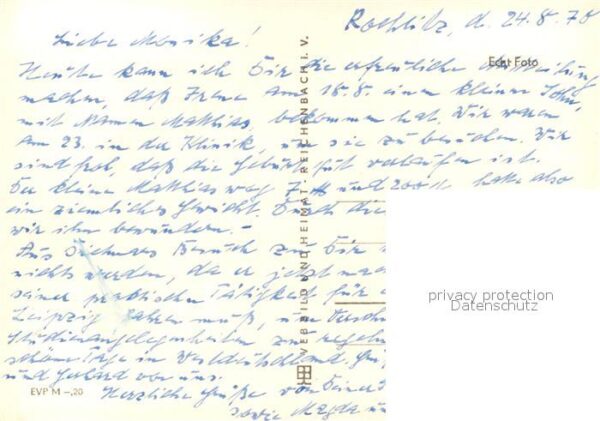 Rochlitz, d. 24.8.78
Liebe Monika!
Echt Foto
Heute kann ich Dir die erfreuliche Mitteilung
machen, daß Irene am 18.8. einen kleinen Sohn,
mit Namen Matthias bekommen hat. Wir waren
am 23. in der Klinik, um sie zu besuchen. Wir
sind froh, daß die Geburt gut verlaufen ist.
Der kleine Matthias wog 7 und 200 g, hatte also
ein ziemliches Gewicht. Durch die
wir ihn bewundern.-
Aus Besuch zu Dir
nichts werden, da er jetzt nach
seiner praktischen Tätigkeit für
Leipzig fahren muß, um
Studienangelegenheiten zu regeln
schöne Tage in Westdeutschland.
und Gerhard von uns.
Herzliche Grüße von Deiner
sowie Magda
VEB BILD UND HEIMAT · REICHENBACH I. V.
privacy protection
Datenschutz
EVP M –,20